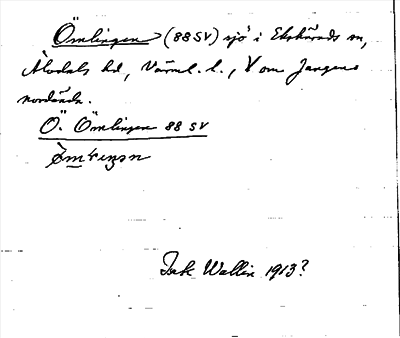 Ömlingen (88 SV) sjö i Ekshärads sn,
Älvdals hd, Värml. l., V om Jangens
nordände.
Ö. Ömlingen 88 SV
Wallin 1913?